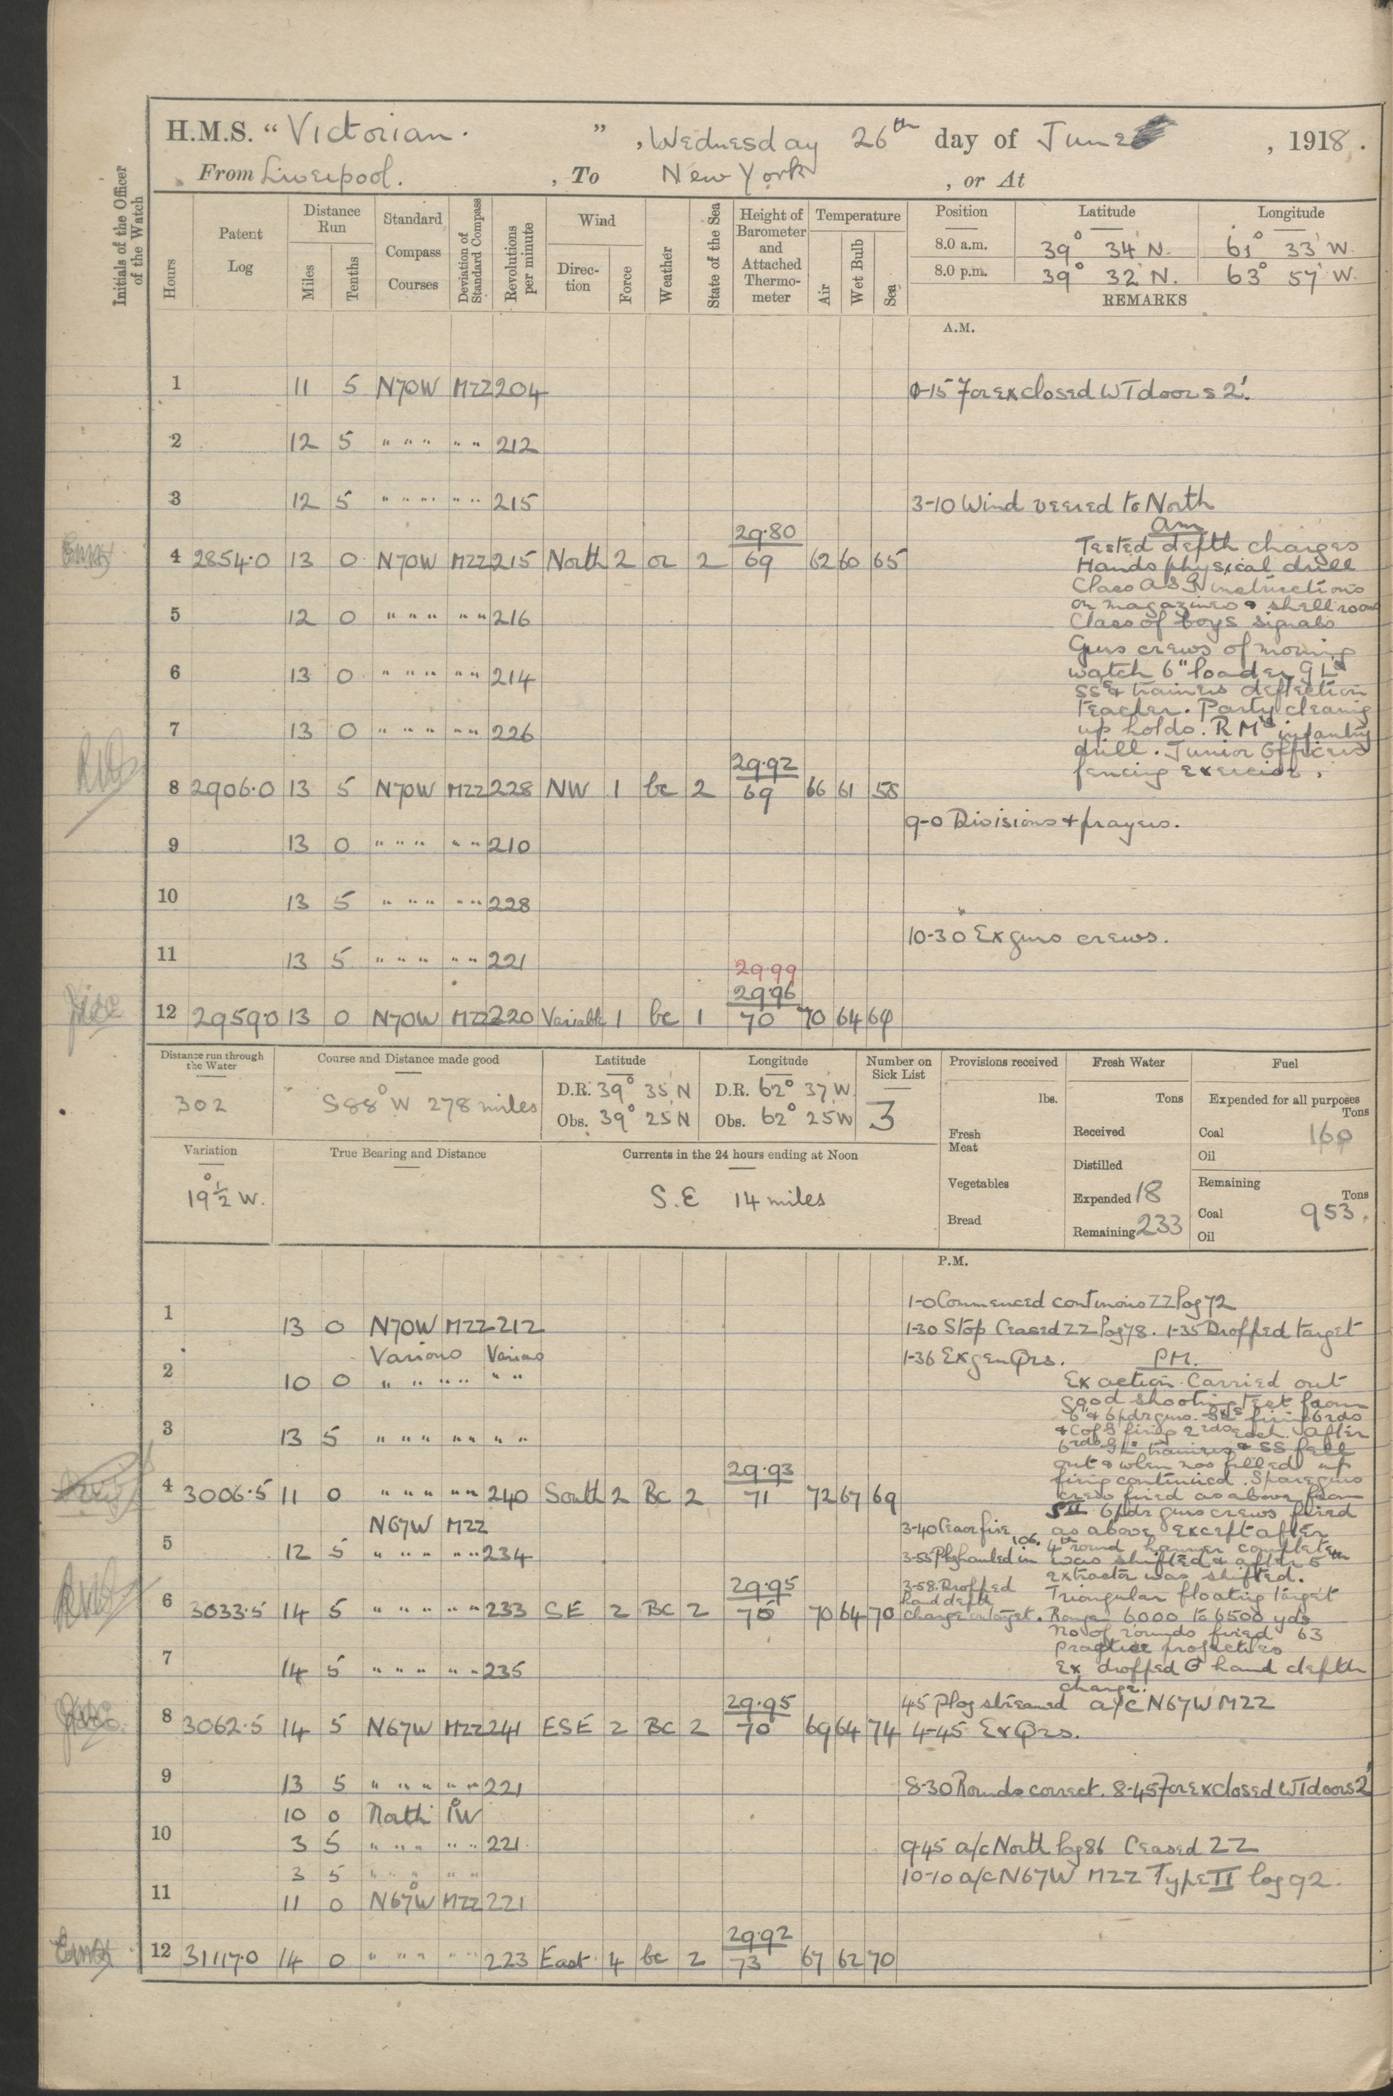 H.M.S. "Victorian.", Wednesday 26th day of June, 1918.
From Liverpool., To New York, or At
Initials of the Officer of the Watch
Hours
Patent Log
Distance Run
Miles
Tenths
Standard Compass Courses
Deviation of Standard Compass
Revolutions per minute
Wind
Direction
Force
Weather
State of the Sea
Height of Barometer and Attached Thermometer
Temperature
Air
Wet Bulb
Sea
Position Latitude Longitude
8.0 a.m. 39° 34' N. 61° 33' W.
8.0 p.m. 39° 32' N. 63° 57' W.
REMARKS
A.M.
1 11 5 N70W MZZ 204 0-15 Forex closed WT doors 2'.
2 12 5 " " " " " 212
3 12 5 " " " " " 215 3-10 Wind veered to North
29.80
4 2854.0 13 0 N70W MZZ 215 North 2 or 2 69 62 60 65
5 12 0 " " " " " 216
6 13 0 " " " " " 214
7 13 0 " " " " " 226
29.92
8 2906.0 13 5 N70W MZZ 228 NW 1 bc 2 69 66 61 58
am
Tested depth charges
Hands physical drill
Class instructions
on magazines & shell room
Class of boys signals
Guns crews of morning
watch 6" loader
trainers deflection
teacher. Party cleaning
up holds. RMs infantry
drill. Junior Officers
fencing exercise.
9-0 Divisions & prayers.
9 13 0 " " " " " 210
10 13 5 " " " " " 228
10-30 Ex guns crews.
11 13 5 " " " " " 221
29.99
29.96
12 2959.0 13 0 N70W MZZ 220 Variable 1 bc 1 70 70 64 64
Distance run through the Water
302
Course and Distance made good
S88°W 278 miles
Latitude
D.R. 39° 35' N
Obs. 39° 25' N
Longitude
D.R. 62° 37' W.
Obs. 62° 25 W
Number on Sick List
3
Provisions received
lbs.
Fresh Meat
Vegetables
Bread
Fresh Water
Tons
Received
Distilled
Expended 18
Remaining 233
Fuel
Expended for all purposes
Tons
Coal 160
Oil
Remaining
Tons
Coal 953.
Oil
Variation
19½° W.
True Bearing and Distance
Currents in the 24 hours ending at Noon
S.E 14 miles
P.M.
1-0 Commenced continous ZZ Plog 72
1 13 0 N70W MZZ 212 1-30 Stop Ceased ZZ Plog 78. 1-35 Dropped target
Various Various 1-36 Ex gen Qrs.
2 10 0 " " " " " "
3 13 5 " " " " " "
29.93
4 3006.5 11 0 " " " " " 240 South 2 Bc 2 71 72 67 69
N67W MZZ
5 12 5 " " " " " 234
29.95
6 3033.5 14 5 " " " " " 233 SE 2 BC 2 70 70 64 70
7 14 5 " " " " " 235
29.95
8 3062.5 14 5 N67W MZZ 241 ESE 2 BC 2 70 69 64 74
PM.
Ex action. Carried out
good shooting test from
6" & 6pdr guns. firing 6 rds
& C of G firing 2 rds each. after
trainers & SS fell
out & when nos filled up
firing continued. Spare guns
crews fired as above from
6pdr guns crews fired
3-40 Cease fire as above except after
4th round hammer complete
3-55 Plog hauled in 106. was shifted & after 5th
extractor was shifted.
3-58. Dropped hand depth charge on target.
Triangular floating target
Range 6000 to 6500 yds
No of rounds fired 63
practice projectiles
Ex dropped hand depth
charge.
45 Plog streamed a/c N67W MZZ
4-45 Ex Qrs.
9 13 5 " " " " " 221 8-30 Rounds correct. 8-45 Forex closed WT doors 2'
10 0 North
10 3 5 " " " " " 221 9-45 a/c North Plog 86 Ceased ZZ
3 5 " " " " " 10-10 a/c N67W MZZ Type II log 92.
11 11 0 N67°W MZZ 221
29.92
12 3117.0 14 0 " " " " " 223 East 4 bc 2 73 67 62 70